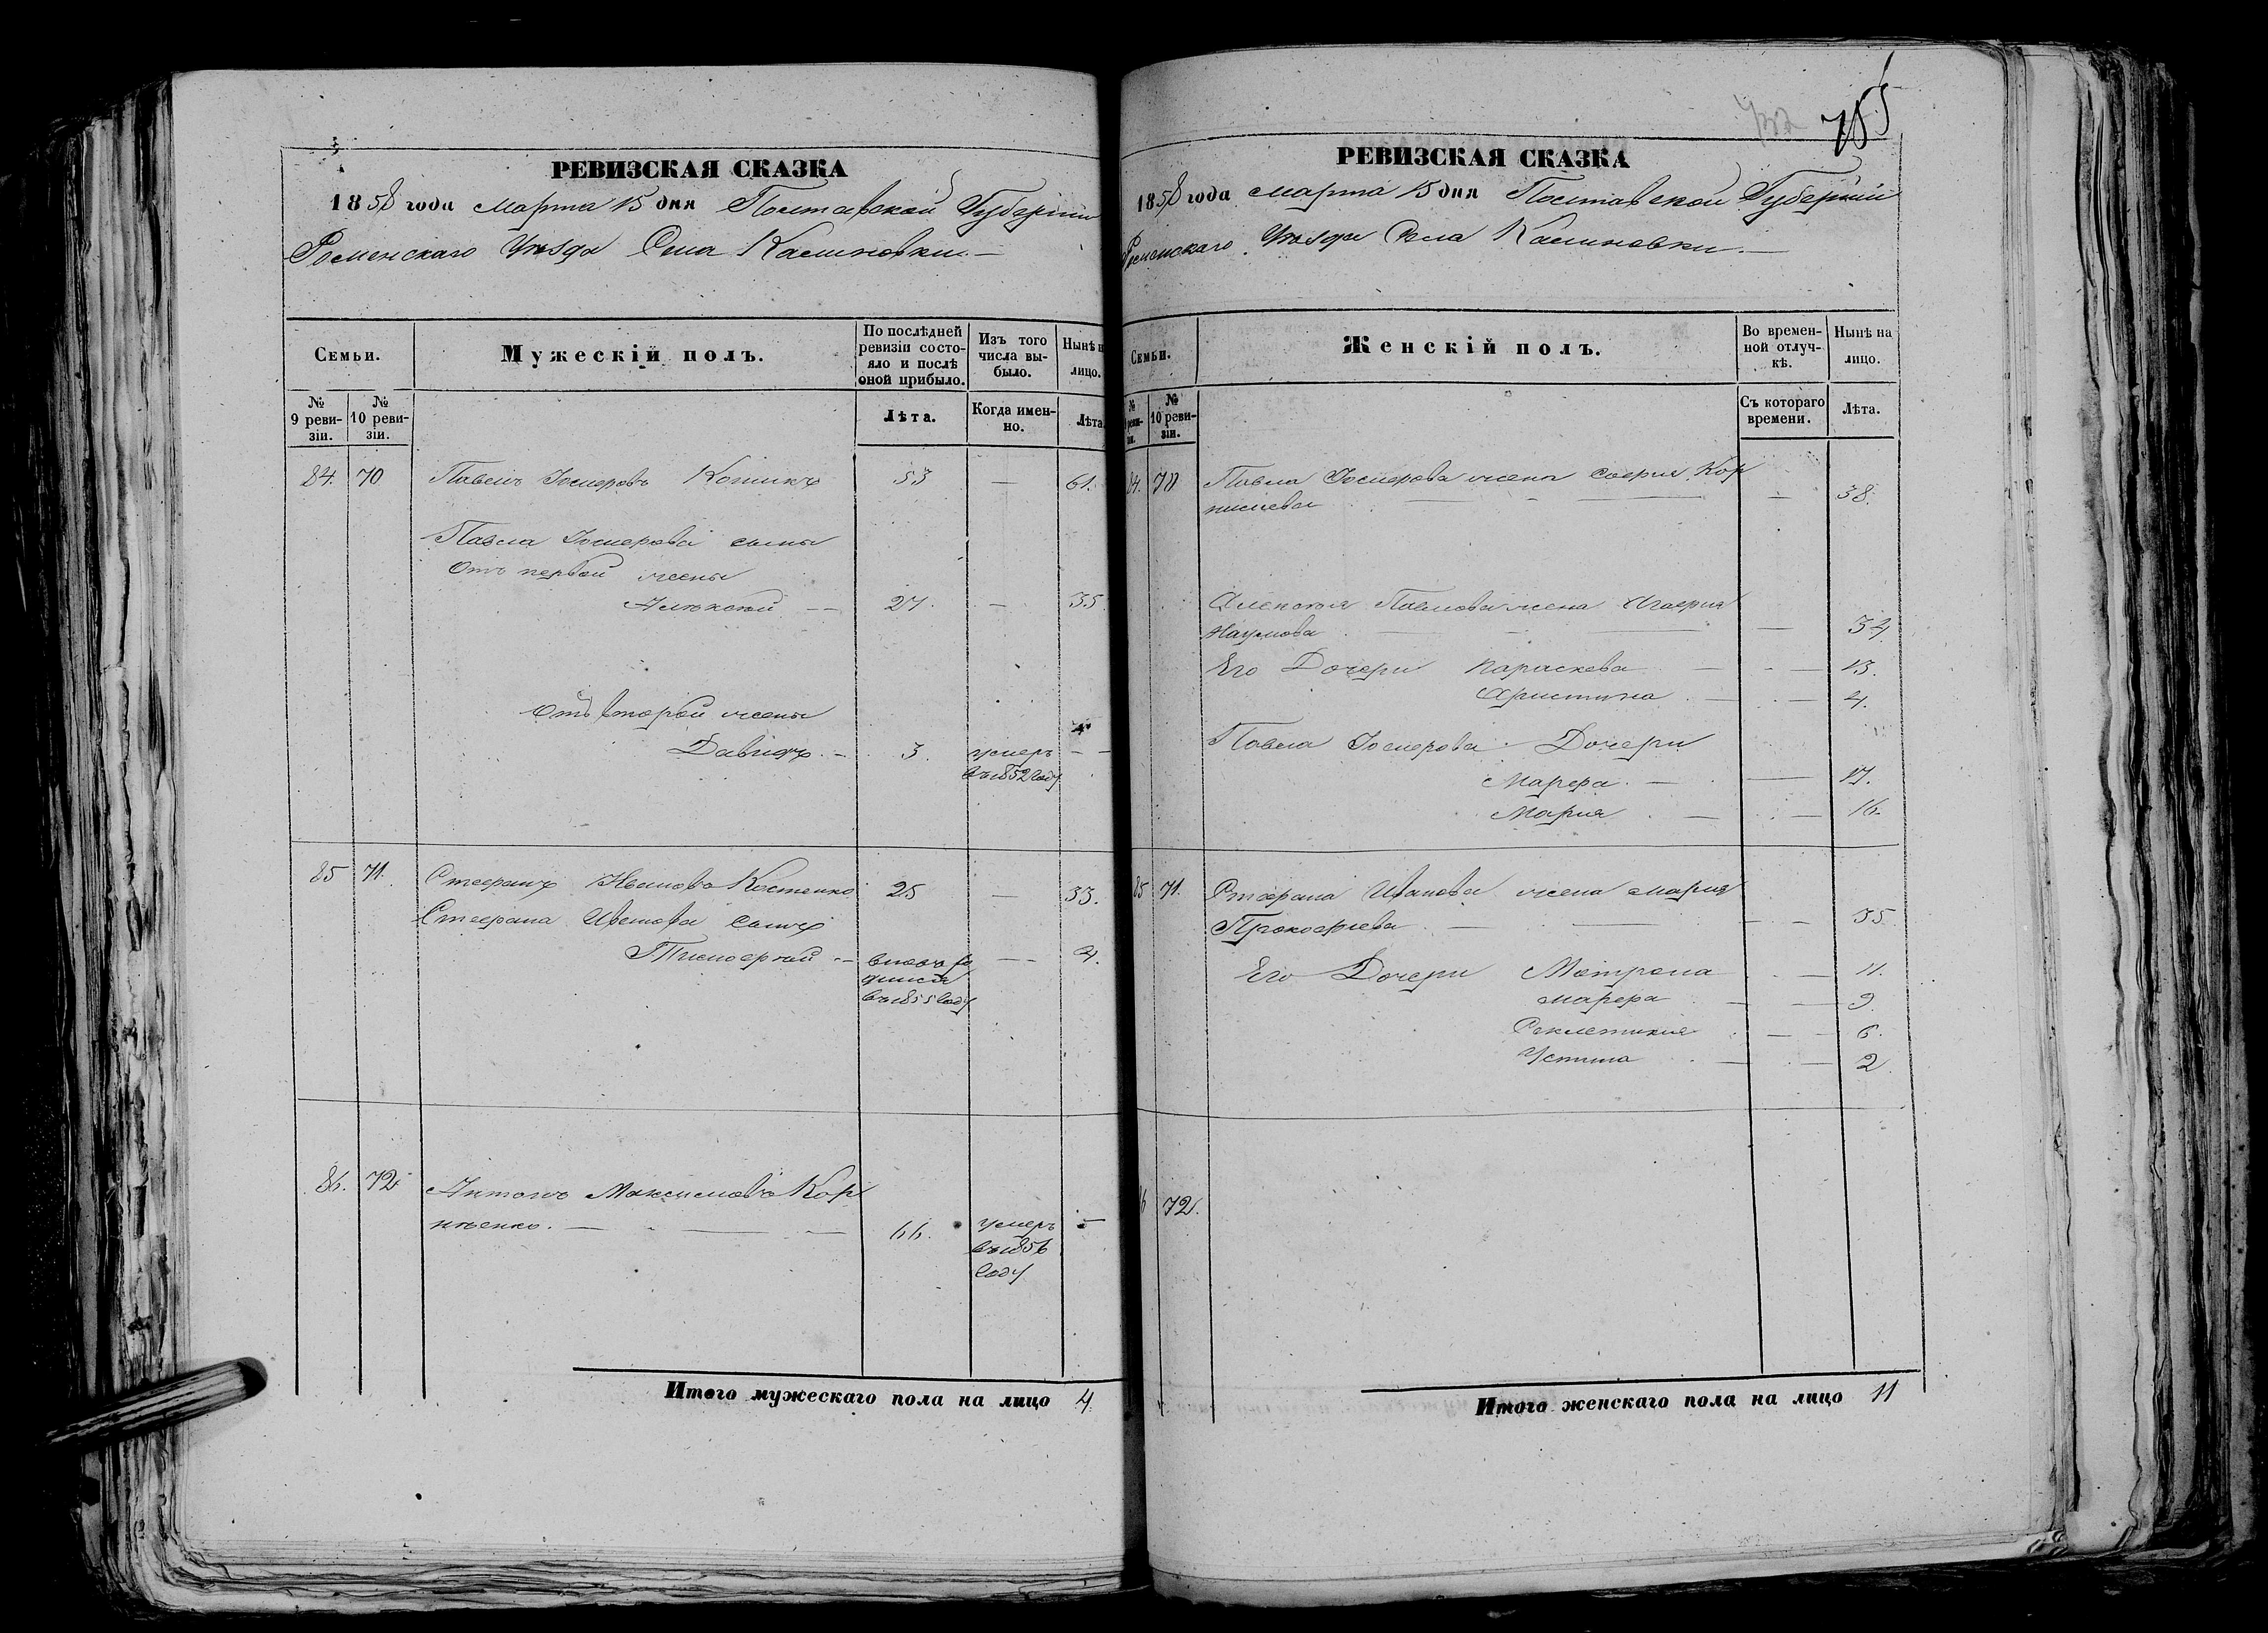 РЕВИЗСКАЯ СКАЗКА
1858 года Марта 15 дня Полтавской Губерніи
Роменскаго Уѣзда Села Калиновки.
Семьи.
Мужескій полъ.
По послѣдней ревизіи состояло и послѣ оной прибыло.
Изъ того числа выбыло.
Нынѣ на лицо.
№ 9 ревизіи.
№ 10 ревизіи.
Лѣта.
Когда именно.
Лѣта.
84. 70 Павелъ Іосифовъ 53 — 61.
Павла Іосифова сыны
Отъ первой жены
Алексѣй — 27. — 35.
Отъ второй жены
Давидъ. — 3. умеръ — —
въ 1852 году
85 71. Стефанъ Ивановъ Костенко 25 — 33.
Стефана Иванова сынъ
Тимофей — — 4.
въ 1855 году
86. 72 Антонъ Максимовъ Кор
нѣенко. — 66. умеръ —
въ 1856
году
Итого мужескаго пола на лицо 4.
755
РЕВИЗСКАЯ СКАЗКА
1858 года Марта 15 дня Полтавской Губерніи
Роменскаго Уѣзда Села Калиновки. —
Семьи.
Женскій полъ.
Во временной отлучкѣ.
Нынѣ на лицо.
№ 9 ревизіи.
№ 10 ревизіи.
Съ котораго времени.
Лѣта.
84. 70 Павла Іосифова жена Софія Кор
— 38.
Алексѣя Павлова жена Агафія
Наумова — 34.
Его Дочери Параскева — 13.
Христина — 4.
Павла Іосифова Дочери
Марфа. — 17.
Мария — 16.
85 71. Стефана Иванова жена Мария
Прокофіева — 35
Его Дочери Матрона — 11.
Марфа — 9.
— 6.
Устина — 2.
86 72.
Итого женскаго пола на лицо 11